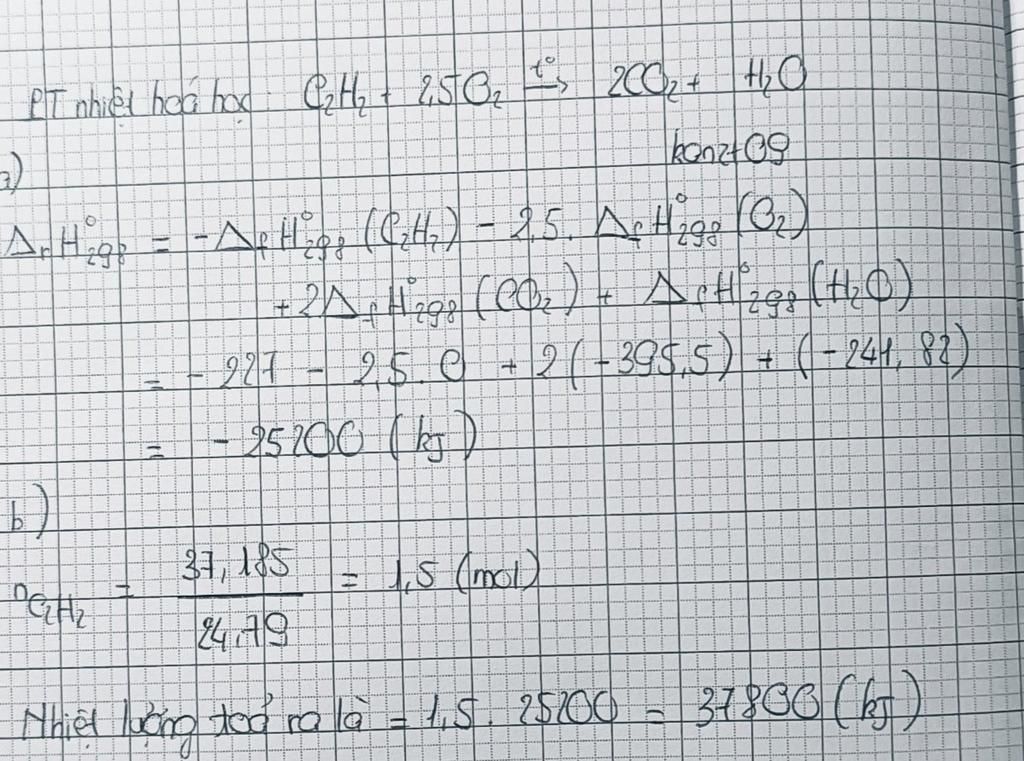 PT nhiệt hoá học: C₂H₂ + 2,5O₂ –t°–> 2CO₂ + H₂O
konzt09
a)
ΔᵣH°₂₉₈ = -Δ_fH°₂₉₈(C₂H₂) - 2,5. Δ_fH°₂₉₈(O₂)
+2Δ_fH°₂₉₈(CO₂) + Δ_fH°₂₉₈(H₂O)
= -227 - 2,5. 0 + 2(-395,5) + (-241,82)
= -25200 (kJ)
b)
n_C₂H₂ = 37,185 / 24,79 = 1,5 (mol)
Nhiệt lượng toả ra là = 1,5. 25200 = 37800 (kJ)